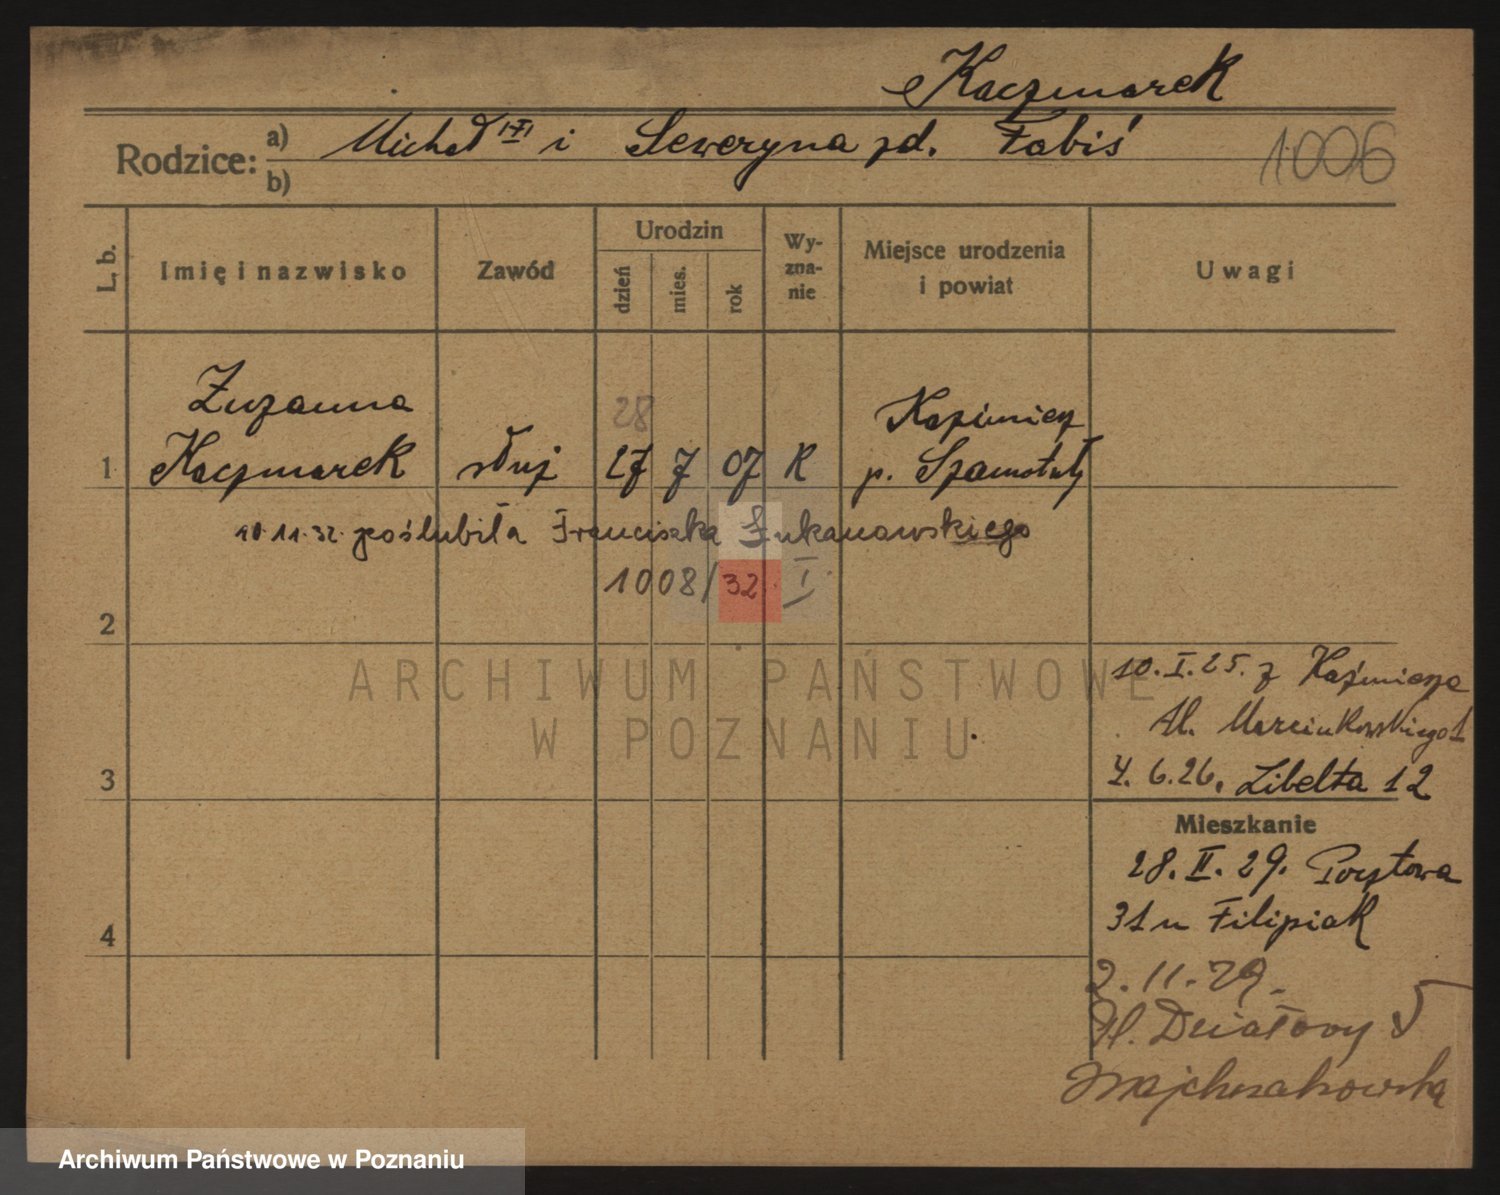 Kaczmarek
Rodzice: a) Michał i Seweryna zd. Fabiś
b)
1006
L. b.
Imię i nazwisko
Zawód
Urodzin
dzień
mies.
rok
Wy-
zna-
nie
Miejsce urodzenia
i powiat
Uwagi
Zuzanna
28
Kaźmierz
1 Kaczmarek służ 27 7 07 K p. Szamotuły
10.11.32. poślubiła Franciszka Łukanowskiego
1008/32. I
2
ARCHIWUM PAŃSTWOWE
W POZNANIU
10.I.25. z Kaźmierza
Al. Marcinkowskiego 1
3
4.6.26. Libelta 12
Mieszkanie
28.II.29. Pocztowa
31 u Filipiak
4
2.11.29.
Pl. Działowy 5
Archiwum Państwowe w Poznaniu